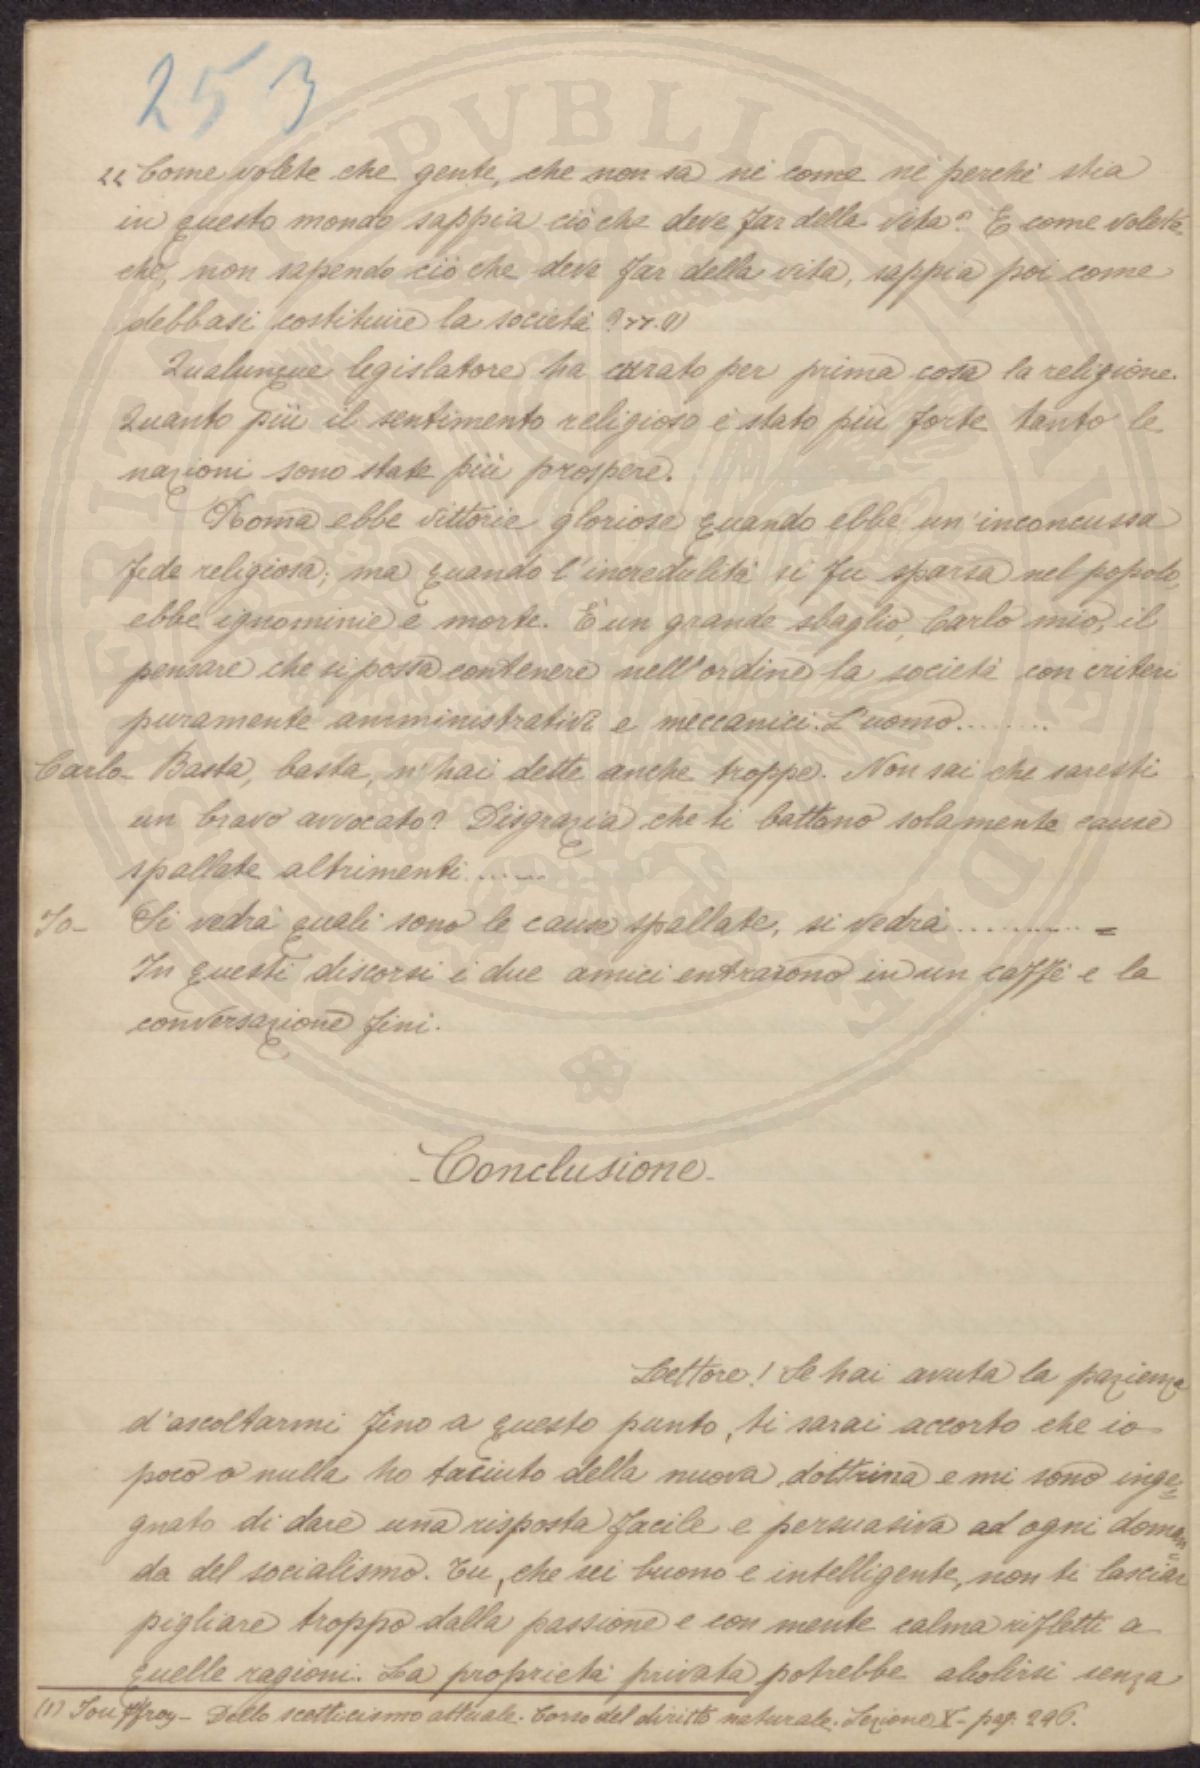 253
"Come volete che gente, che non sa nè come nè perchè stia
in questo mondo sappia ciò che deve far della vita? E come volete
che, non sapendo ciò che deve far della vita, sappia poi come
debbasi costituire la società?". (1)
Qualunque legislatore ha curato per prima cosa la religione.
Quanto più il sentimento religioso è stato più forte tanto le
nazioni sono state più prospere.
Roma ebbe vittorie gloriose quando ebbe un'inconcussa
fede religiosa; ma quando l'incredulità si fu sparsa nel popolo,
ebbe ignominie e morte. È un grande sbaglio, Carlo mio, il
pensare che si possa contenere nell'ordine la società con criteri
puramente amministrativi e meccanici. L'uomo........
Carlo- Basta, basta, n'hai dette anche troppe. Non sai che saresti
un bravo avvocato? Disgrazia che ti battono solamente cause
spallate altrimenti......
Io- Si vedrà quali sono le cause spallate, si vedrà........... =
In questi discorsi i due amici entrarono in un caffè e la
conversazione finì.
-Conclusione-
Lettore! Se hai avuta la pazienza
d'ascoltarmi fino a questo punto, ti sarai accorto che io
poco o nulla ho taciuto della nuova dottrina e mi sono inge=
gnato di dare una risposta facile e persuasiva ad ogni doman=
da del socialismo. Tu, che sei buono e intelligente, non ti lasciar
pigliare troppo dalla passione e con mente calma rifletti a
quelle ragioni. La proprietà privata potrebbe abolirsi senza
(1) Jouffroy- Dello scetticismo attuale. Corso del diritto naturale. Lezione X- pag. 296.